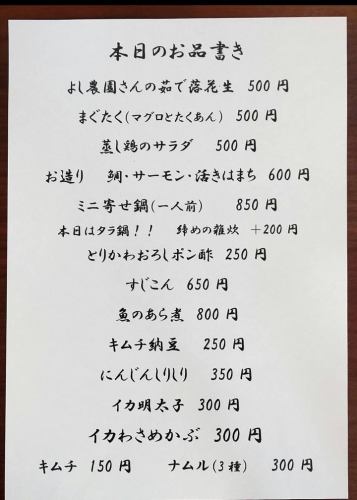 本日のお品書き
よし農園さんの茹で落花生 500円
まぐたく(マグロとたくあん) 500円
蒸し鶏のサラダ 500円
お造り 鯛・サーモン・活きはまち 600円
ミニ寄せ鍋(一人前) 850円
本日はタラ鍋!! 締めの雑炊 +200円
とりかわおろしポン酢 250円
すじこん 650円
魚のあら煮 800円
キムチ納豆 250円
にんじんしりしり 350円
イカ明太子 300円
イカわさめかぶ 300円
キムチ 150円 ナムル(3種) 300円